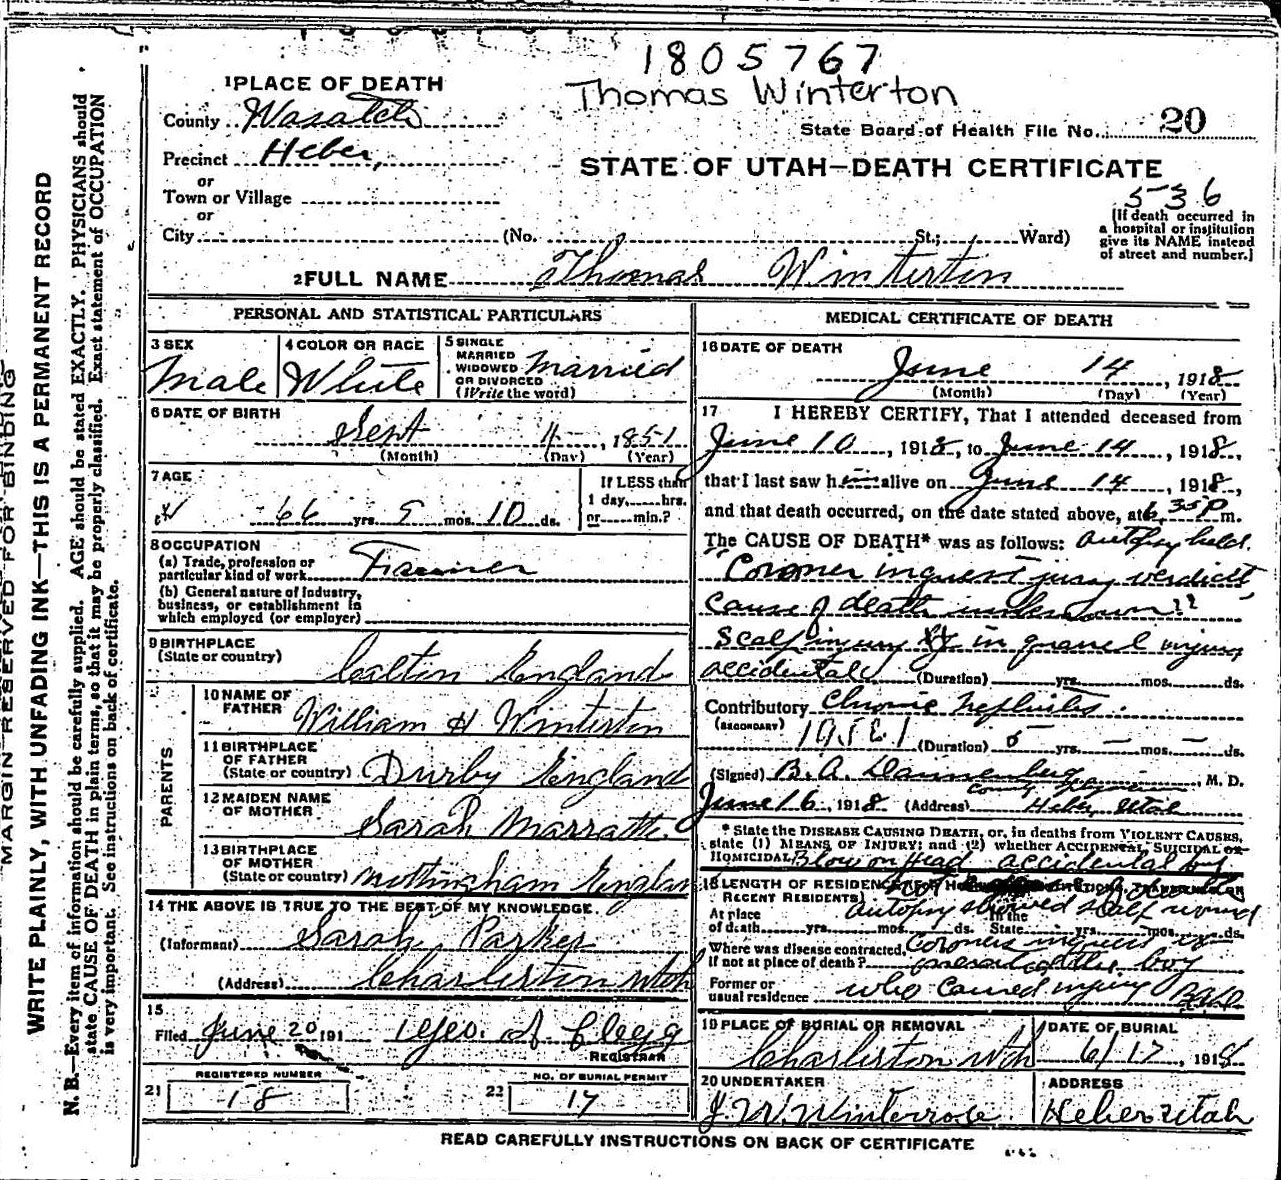 1805767
Thomas Winterton
1 PLACE OF DEATH
County Wasatch
State Board of Health File No. 20
Precinct Heber,
STATE OF UTAH—DEATH CERTIFICATE
or
Town or Village
or
536
City (No. St.; Ward)
(If death occurred in
a hospital or institution
give its NAME instead
of street and number.]
2 FULL NAME Thomas Winterton
PERSONAL AND STATISTICAL PARTICULARS
3 SEX
Male
4 COLOR OR RACE
White
5 SINGLE
MARRIED
WIDOWED
OR DIVORCED
(Write the word)
Married
6 DATE OF BIRTH
Sept 4, 1851
(Month) (Day) (Year)
7 AGE
66 yrs. 9 mos. 10 ds.
If LESS than
1 day, hrs.
or min.?
8 OCCUPATION
(a) Trade, profession or
particular kind of work Farmer
(b) General nature of Industry,
business, or establishment in
which employed (or employer)
9 BIRTHPLACE
(State or country) England
PARENTS
10 NAME OF
FATHER William H Winterton
11 BIRTHPLACE
OF FATHER
(State or country) Durby England
12 MAIDEN NAME
OF MOTHER Sarah
13 BIRTHPLACE
OF MOTHER
(State or country) Nottingham Englan
14 THE ABOVE IS TRUE TO THE BEST OF MY KNOWLEDGE.
(Informant) Sarah Parker
(Address) Charleston Utah
15
Filed June 20 191 Geo. A Clegg
REGISTRAR
REGISTERED NUMBER
21 18
NO. OF BURIAL PERMIT
22 17
MEDICAL CERTIFICATE OF DEATH
16 DATE OF DEATH
June 14, 1918
(Month) (Day) (Year)
17 I HEREBY CERTIFY, That I attended deceased from
June 10, 1918, to June 14, 1918,
that I last saw him alive on June 14, 1918,
and that death occurred, on the date stated above, at 6.35P m.
The CAUSE OF DEATH* was as follows: autopsy held.
"Coroner inquest jury verdict,
cause of death unknown"
Scalp injury in quarrel injury
accidental (Duration) yrs. mos. ds.
Contributory Chronic Nephritis.
(SECONDARY) (Duration) 5 yrs. — mos. — ds.
(Signed) B. A. Dannenberg, M. D.
County Physician
June 16, 1918 (Address) Heber Utah
* State the DISEASE CAUSING DEATH, or, in deaths from VIOLENT CAUSES,
state (1) MEANS OF INJURY; and (2) whether ACCIDENTAL, SUICIDAL or
HOMICIDAL Blow on Head accidental by
18 LENGTH OF RESIDENCE
RECENT RESIDENTS)
autopsy showed scalp wound
At place
of death yrs. mos. ds. In the State yrs. mos. ds.
Where was disease contracted, Coroners inquest
If not at place of death? the boy
Former or
usual residence who caused injury
19 PLACE OF BURIAL OR REMOVAL
Charleston Utah
DATE OF BURIAL
6/17, 1918
20 UNDERTAKER
J. W. Winterrose
ADDRESS
Heber Utah
READ CAREFULLY INSTRUCTIONS ON BACK OF CERTIFICATE
MARGIN RESERVED FOR BINDING
WRITE PLAINLY, WITH UNFADING INK—THIS IS A PERMANENT RECORD
N. B.—Every item of information should be carefully supplied. AGE should be stated EXACTLY. PHYSICIANS should
state CAUSE OF DEATH in plain terms, so that it may be properly classified. Exact statement of OCCUPATION
is very important. See instructions on back of certificate.